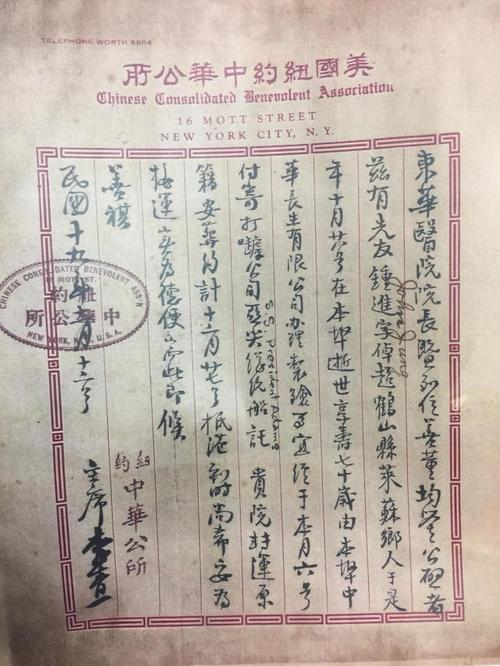 TELEPHONE, WORTH 5984
美國紐約中華公所
Chinese Consolidated Benevolent Association
16 MOTT STREET
NEW YORK CITY, N.Y.
東華醫院院長暨列位善董均鑒公啟者
茲有先友鍾進安倬超鶴山縣萊蘇鄉人于是
John Jung
年十月廿八号在本埠逝世享壽七十歲由本埠中
華長生有限公司辦理製殮事宜經于本月六号
付寄打嚹公司亞当总统船託 貴院轉運原
S.S. President Adams
籍安葬約計十二月廿七号抵港到時尚希妥為
接運 實為德便 耑此即候
善祺
民國十九年 月十二号
CHINESE CONSOLIDATED BENEVOLENT ASS'N
16 MOTT ST.
紐約
中華公所
NEW YORK, N.Y., U.S.A.
紐約中華公所
主席